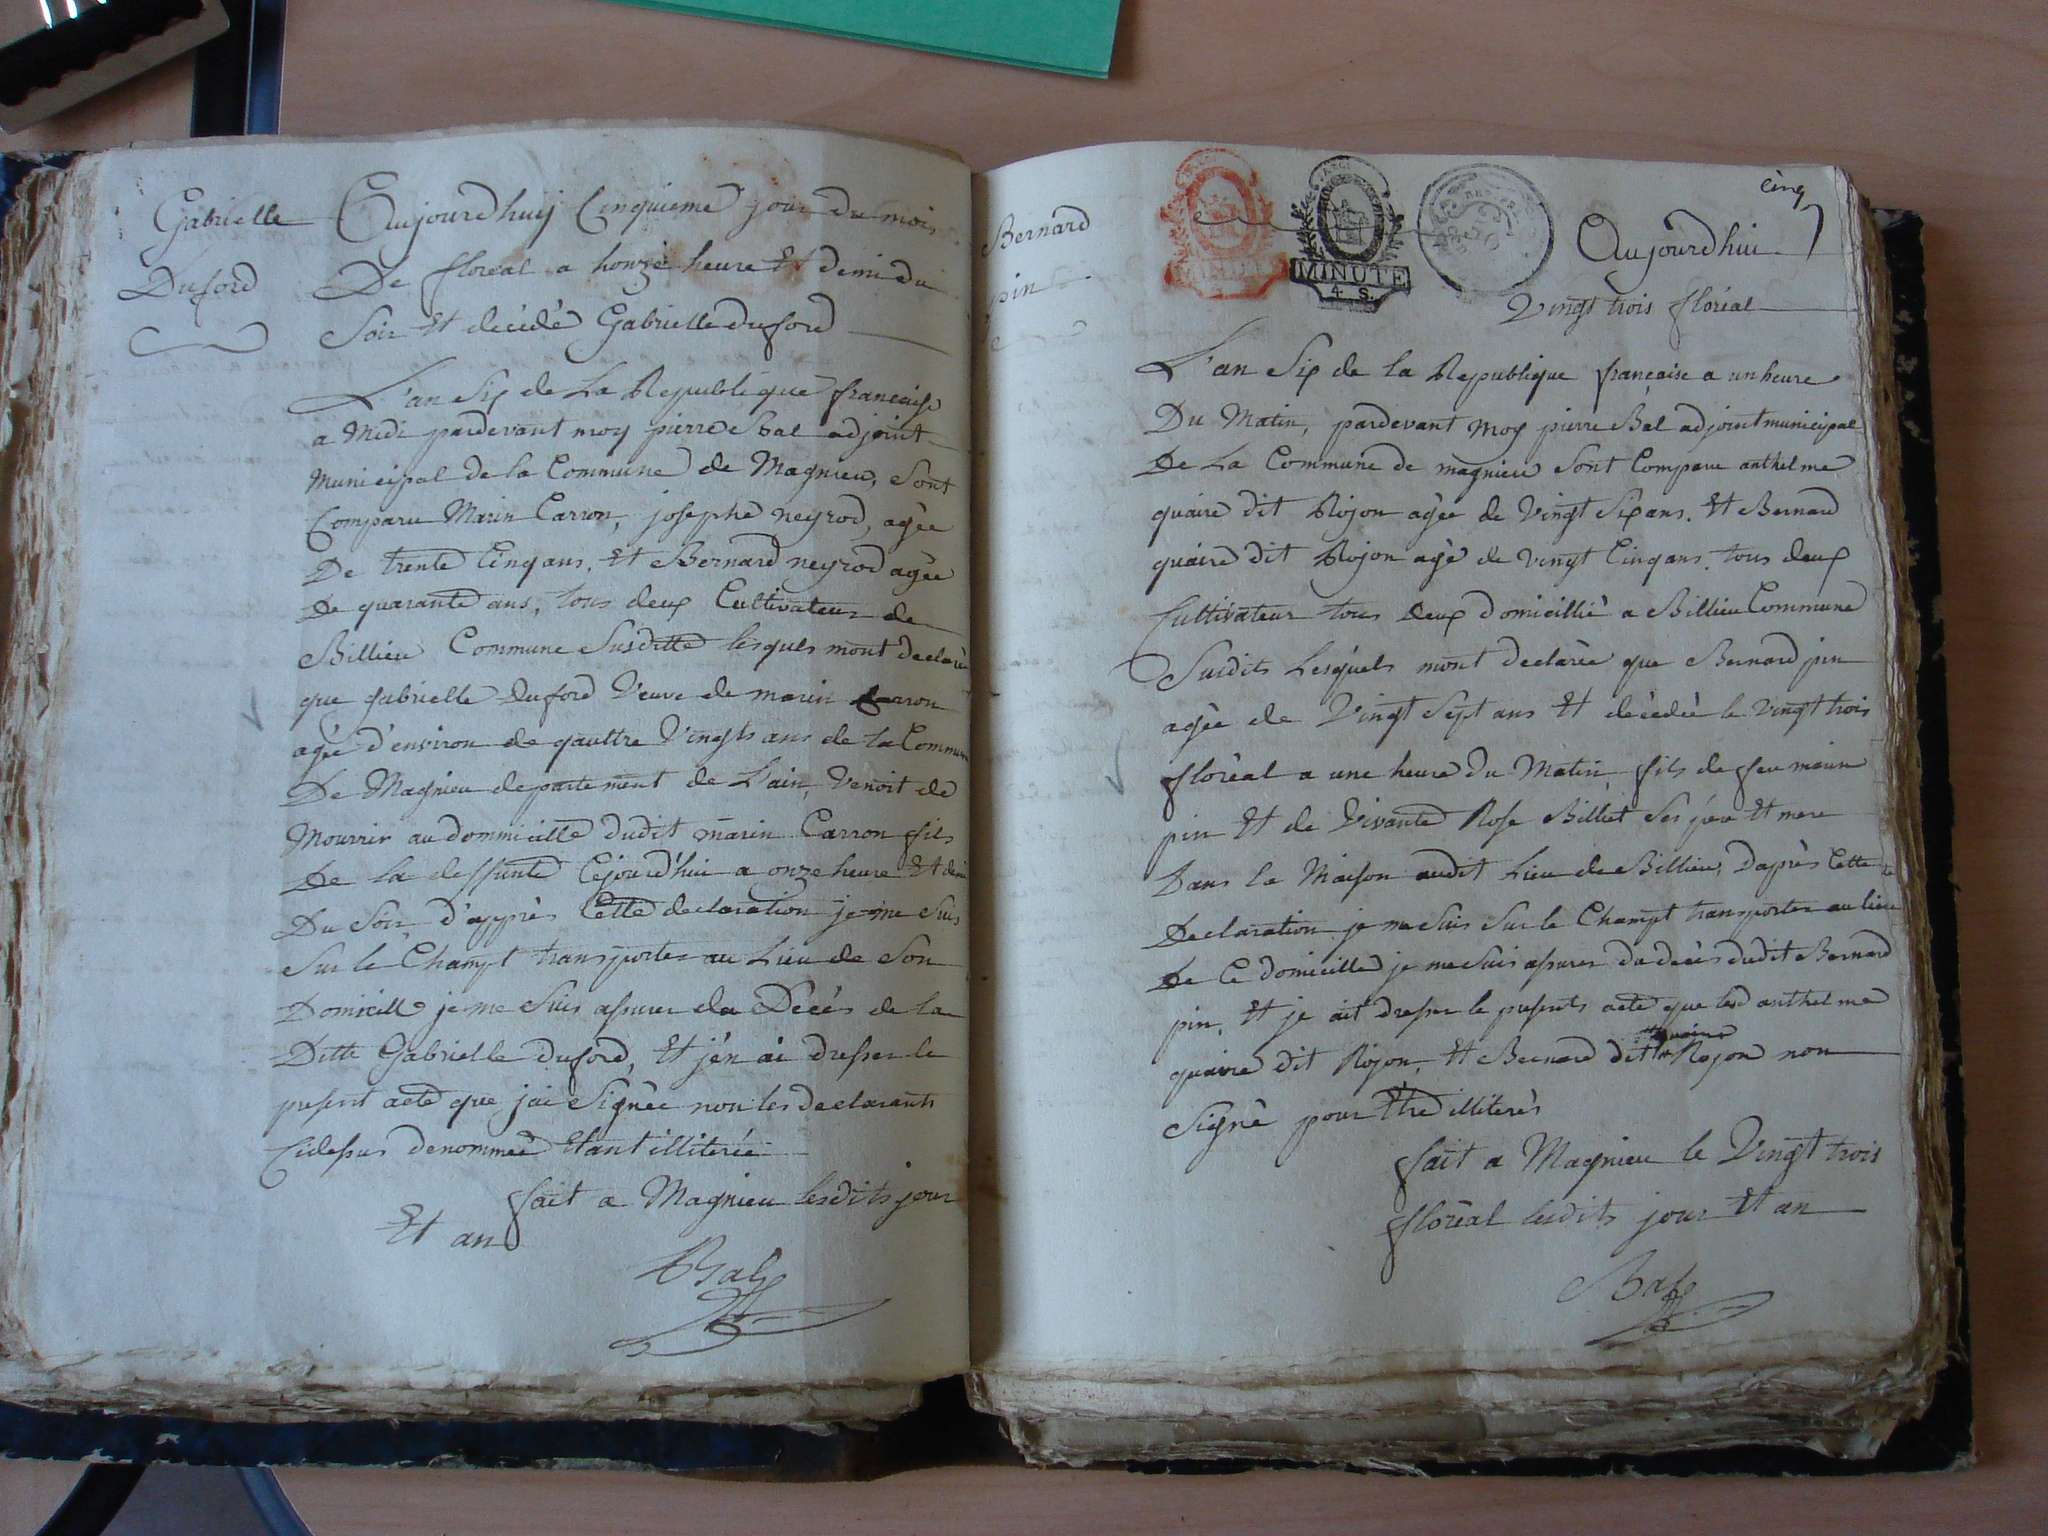 Gabrielle
Duford
Aujourdhuy Cinquieme jour du mois
De floreal a honze heure Et demi du
Soir Et decédé Gabrielle duford
L'an Six de La Republique francaise
a Midi pardevant moy pierre Bal adjoint
Municipal de la Commune de Magnieu, Sont
Comparu Marin Carron, josephe neyrod, agée
De trente Cinq ans, Et Bernard neyrod agée
De quarante ans, tous deux Cultivateur de
Billieu Commune Susditte lesquels mont declarée
que gabrielle duford Veuve de marin Carron
agée d'environ de quattre Vingts ans de la Commune
De Magnieu departement de L'ain, Venoit de
Mourrir au dommicille dudit marin Carron fils
De la deffunte Cejourd'hui a onze heure Et demi
Du Soir d'apprès Cette declaration je me Suis
Sur le Champt transporter au Lieu de Son
Domicill je me Suis assurer du Décés de la
Ditte Gabrielle duford, Et j'en ai dresser le
present acte que jai Signée non les declarants
Cidessus denommée Etant illiterée
fait a Magnieu lesdits jour
Et an
Bal
Bernard
pin
MINUTE
4. S.
Cinq
Aujourdhui
Vingt trois floréal
L'an Six de la Republique francaise a un heure
Du Matin, pardevant Moy pierre Bal adjoint municipal
De La Commune de magnieu Sont Comparu anthelme
quaire dit Rojon agée de Vingt Six ans. Et Bernard
quaire dit Rojon agé de vingt Cinq ans. tous deux
Cultivateur tous deux domicillié a Billieu Commune
Susdits Lesquels mont declarée que Bernard pin
agée de Vingt Sept ans Et décedée le Vingt trois
floréal a une heure du Matin fils de feu marin
pin Et de Vivante Rose Billiet Ses pere Et mere
Dans la Maison audit Lieu de Billieu, D'après Cette
Declaration je me Suis Sur le Champt transporter au lieu
De Ce domicille je me Suis assurer du decès dudit Bernard
pin, Et je ait dresser le presents acte que led anthelme
quaire
quaire dit Rojon, Et Bernard dit Rojon non
Signé pour Etre illiterés
fait a Magnieu le Vingt trois
floréal lesdits jour Et an
Bal